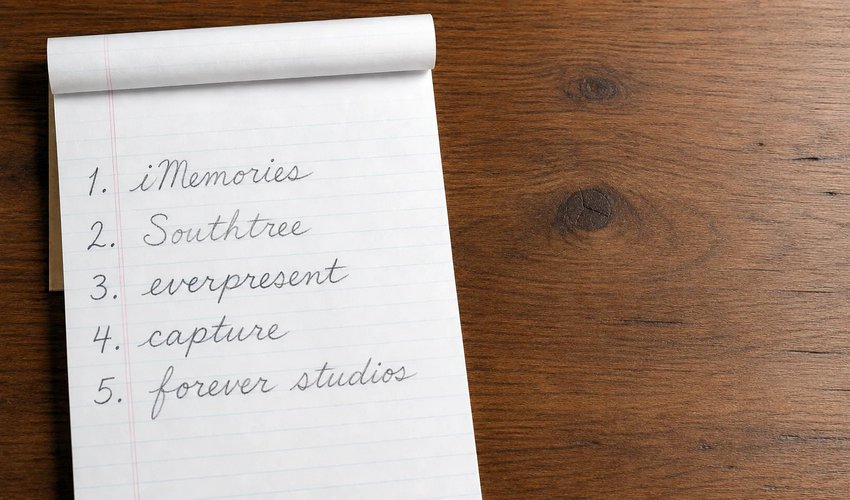 1. iMemories
2. Southtree
3. everpresent
4. capture
5. forever studios